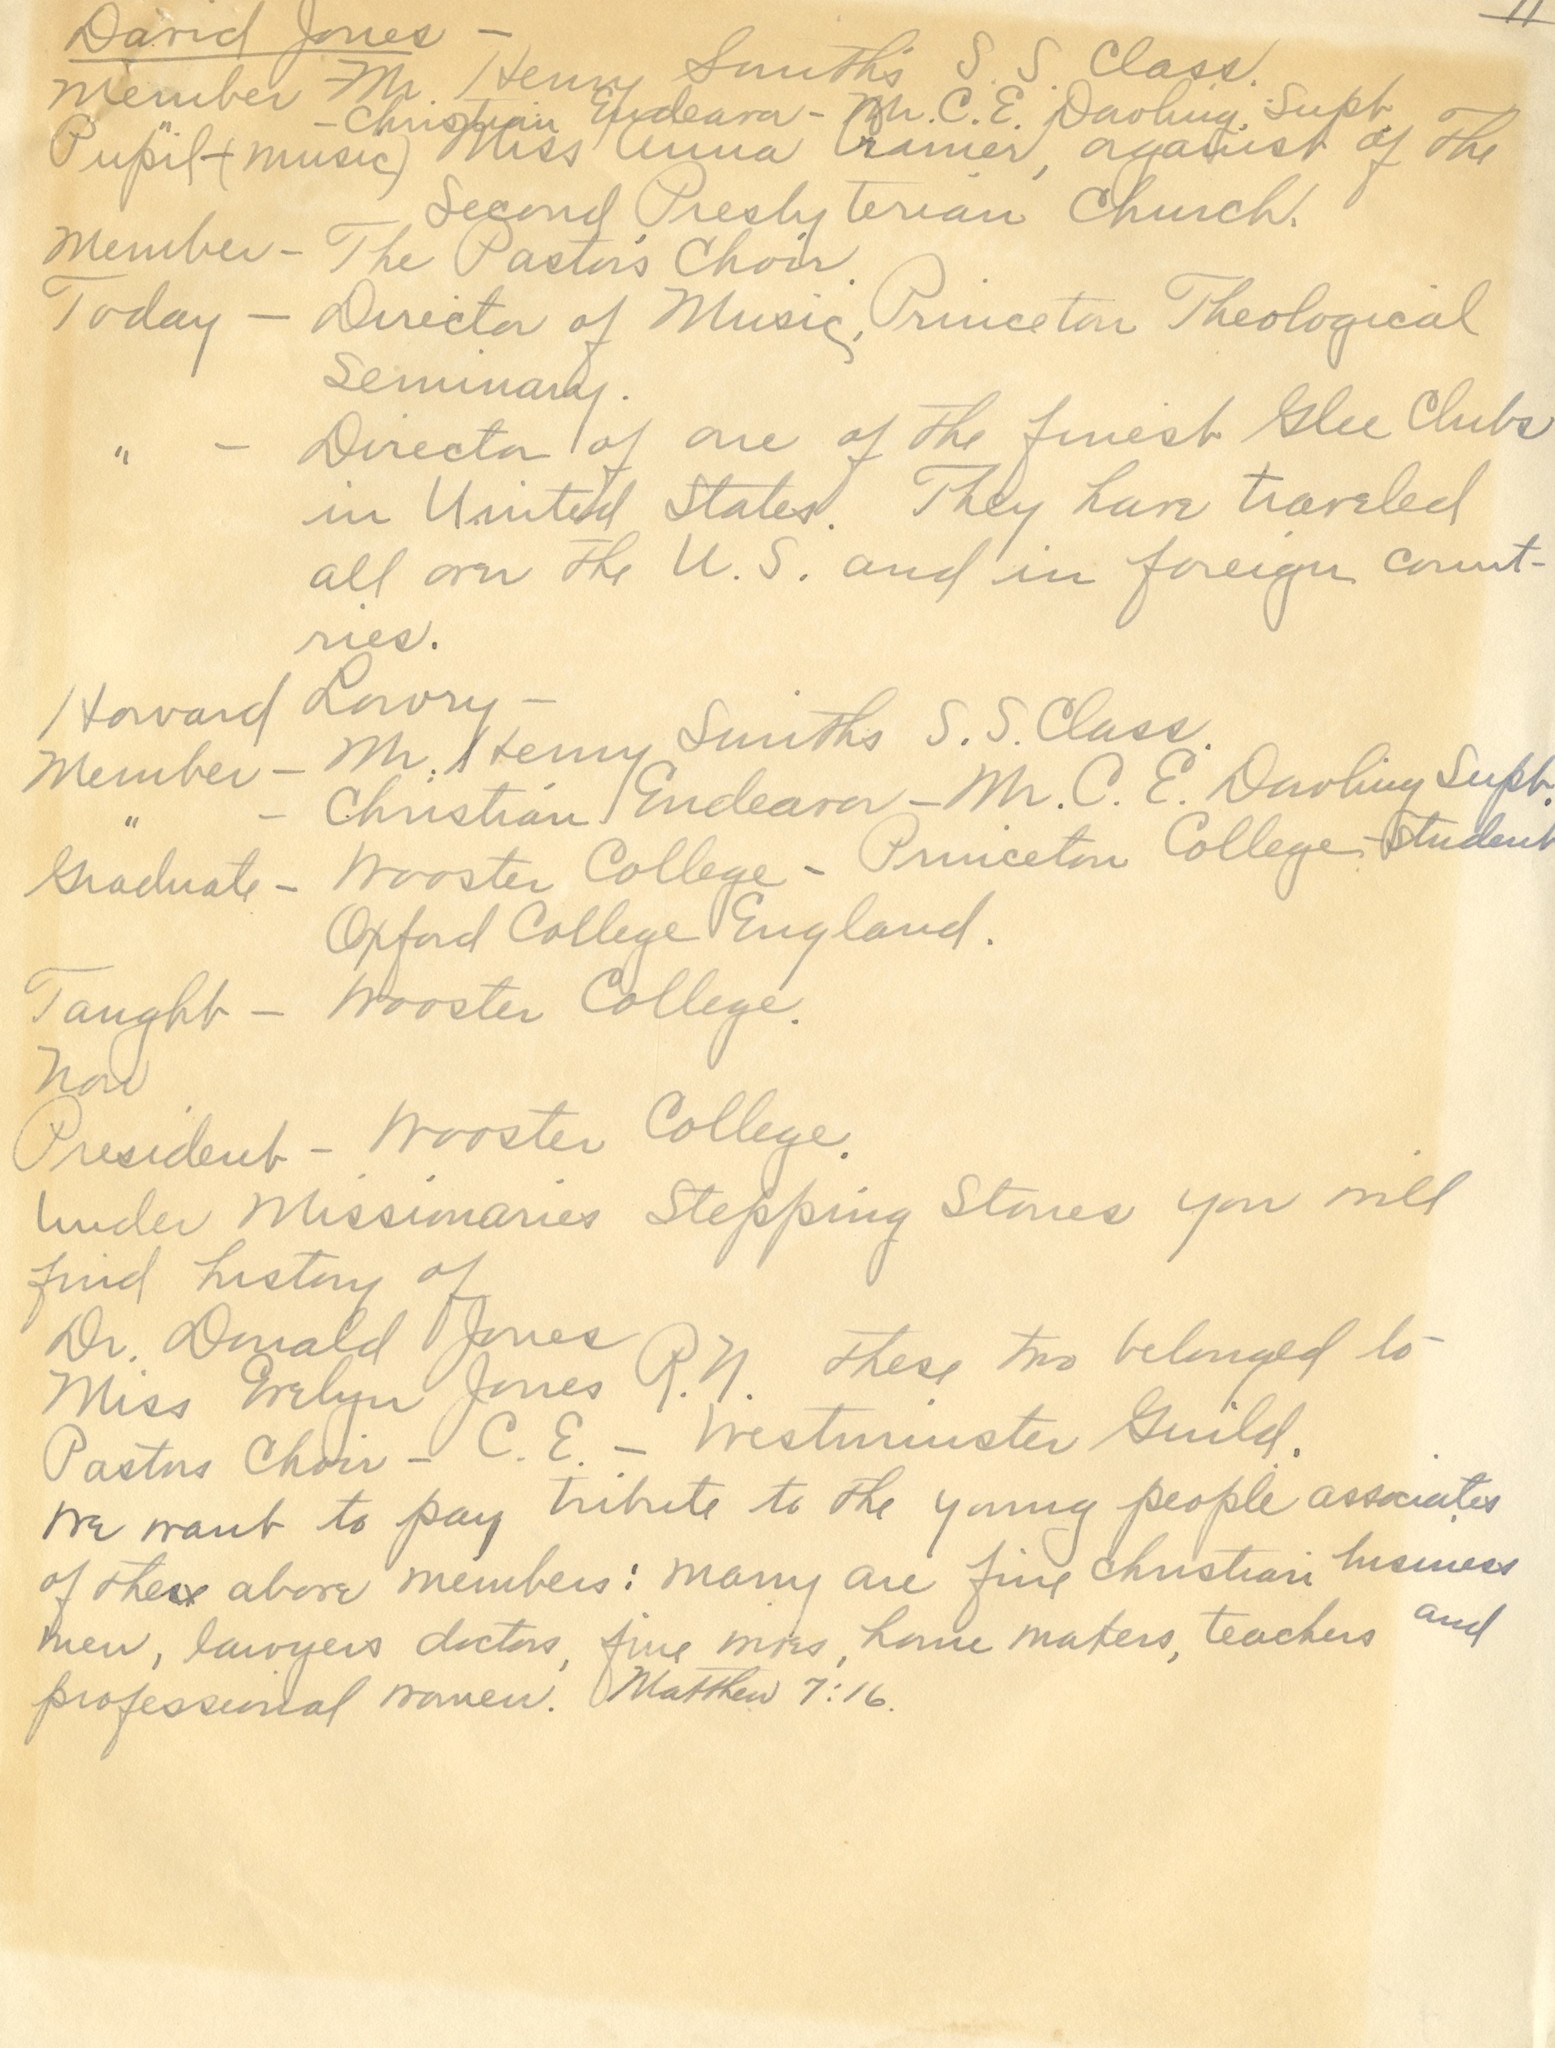 11
David Jones -
Member - Mr. Henry Smith's S. S. Class.
" - Christian Endeavor - Mr. C. E. Darling. Supt.
Pupil - (music) Miss Anna Cramer, organist of the
Second Presbyterian Church.
Member - The Pastor's Choir.
Today - Director of Music, Princeton Theological
Seminary.
" - Director of one of the finest Glee Clubs
in United States. They have traveled
all over the U. S. and in foreign count-
ries.
Howard Lowry -
Member - Mr. Henry Smith's S. S. Class.
" - Christian Endeavor - Mr. C. E. Darling Supt.
Graduate - Wooster College - Princeton College - Student
Oxford College England.
Taught - Wooster College.
Now
President - Wooster College.
Under Missionaries Stepping Stones you will
find history of
Dr. Donald Jones
Miss Evelyn Jones R. N. These two belonged to
Pastors Choir - C. E. - Westminster Guild.
We want to pay tribute to the young people associates
of these above members: many are fine Christian business
men, lawyers doctors, fine wives, home makers, teachers and
professional women. Matthew 7:16.